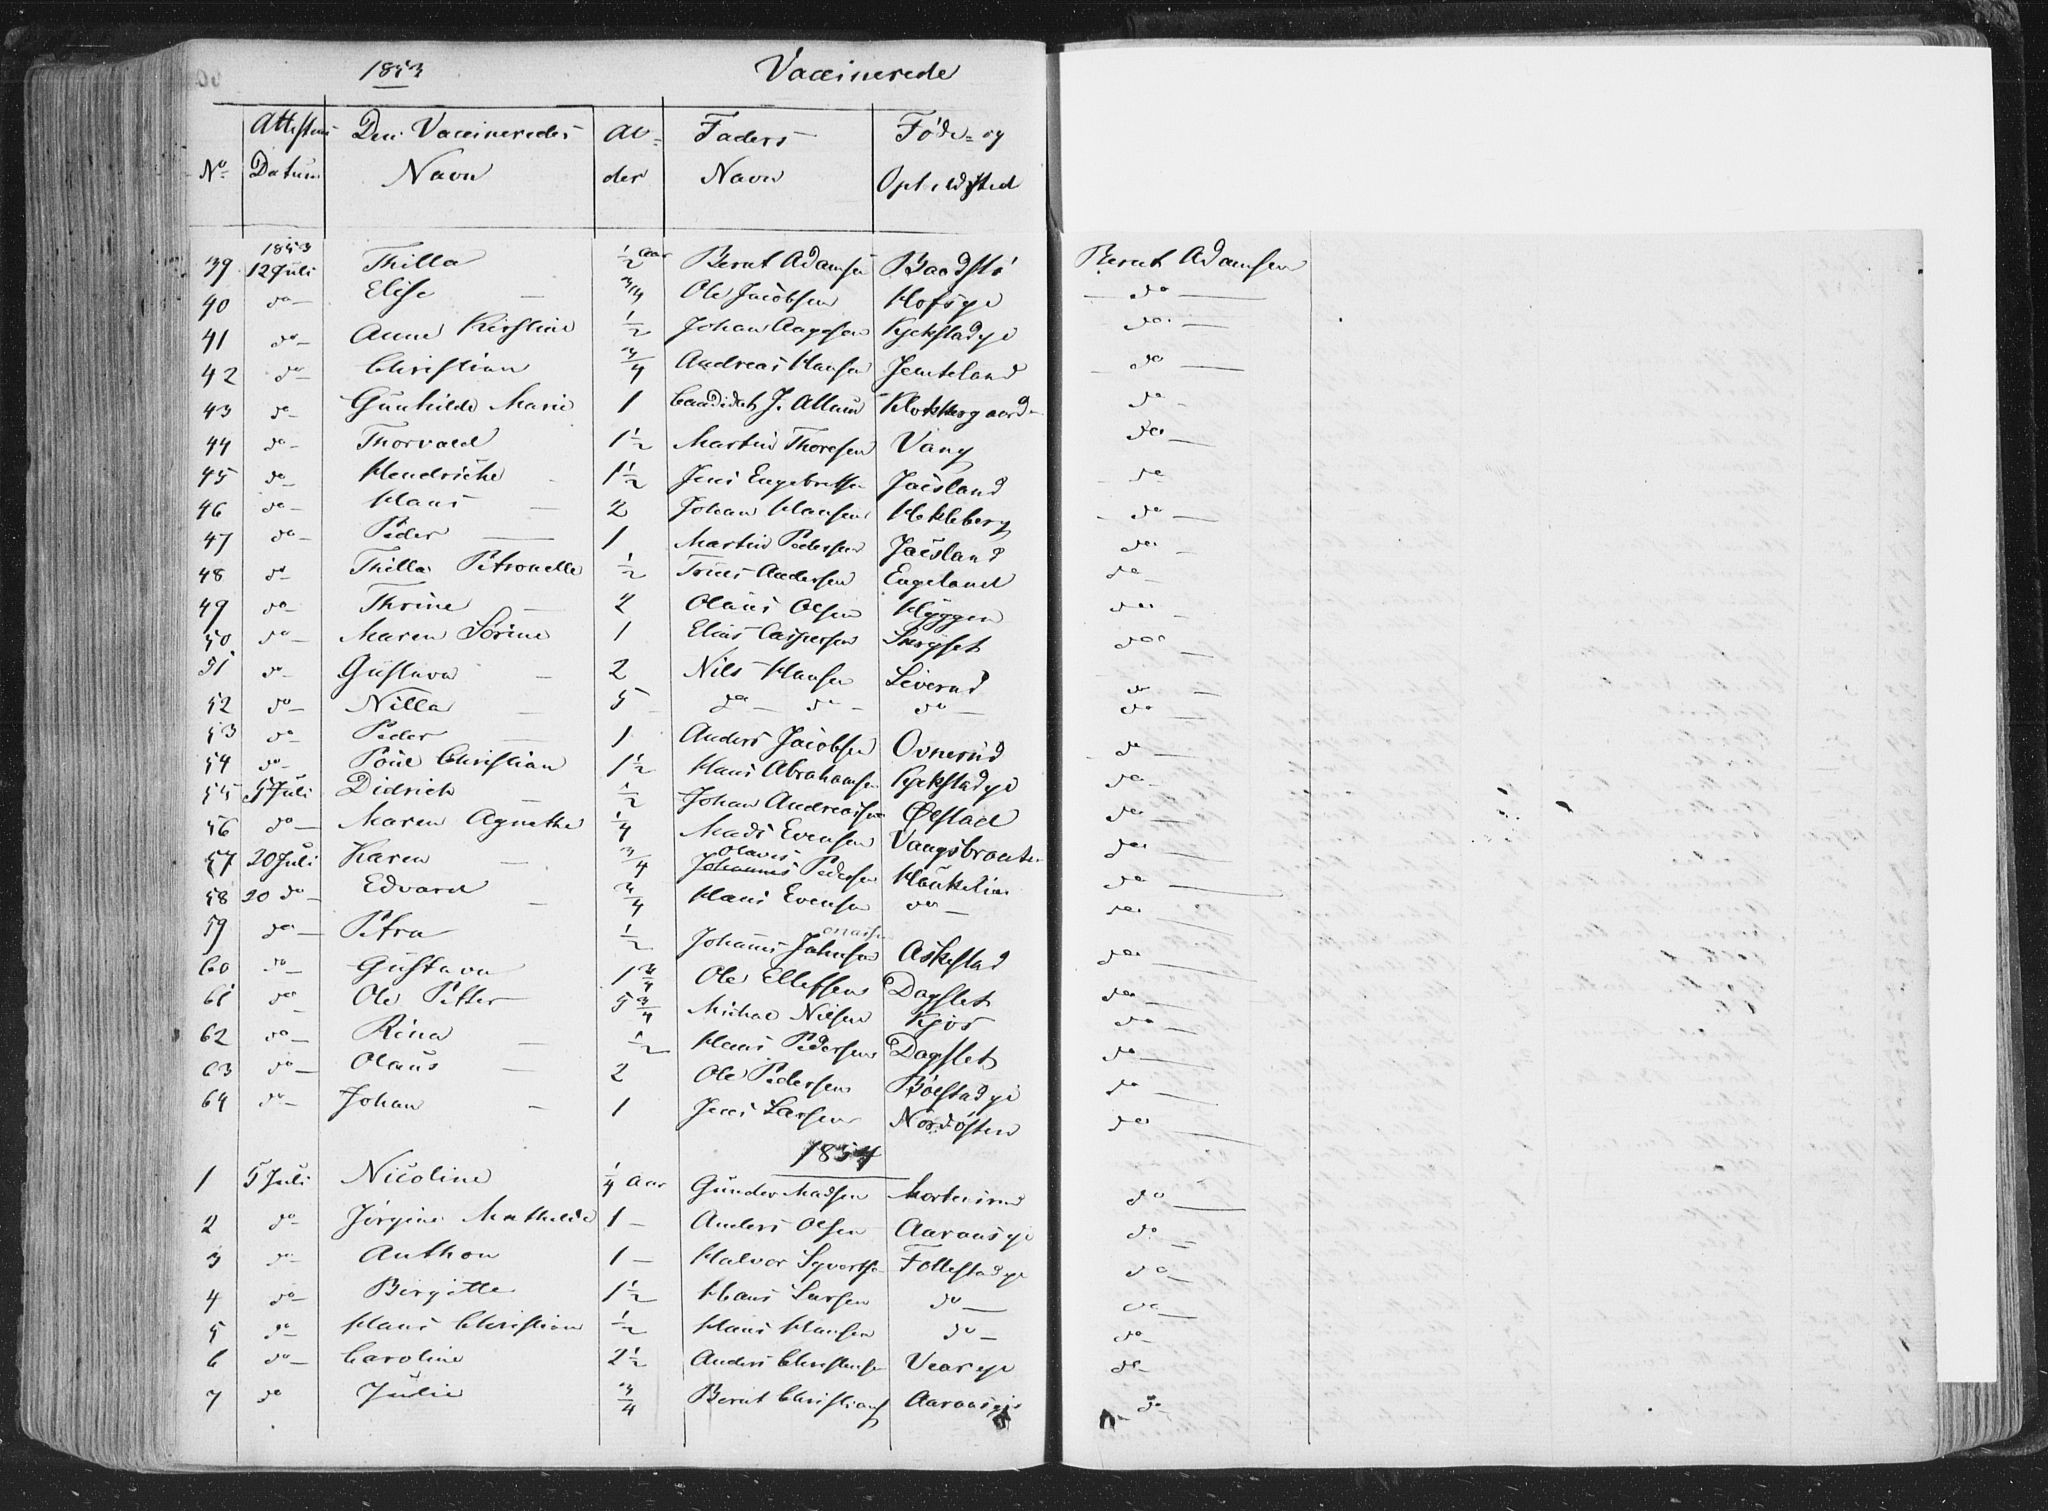 1853 Vaccinerede
No Attestens Datum Den Vaccineredes Navn Alder Faders Navn Føde- og Opholdssted
1853
39 12 Juli Thilla ½ Aar Bernt Adamsen Baadstø Bernt Adamsen
40 do Elise 3/4 Ole Jacobsen Hofsye do
41 do Anne Kirstine ½ Johan Aagesen Kjekstadye do
42 do Christian 3/4 Andreas Hansen Jemteland do
43 do Gunhilde Marie 1 Candidat J. Allum Klokkergaard do
44 do Thorvald 1½ Martin Thoresen Vang do
45 do Hendricke 1½ Jens Engebretsen Jaesland do
46 do Hans 2 Johan Hansen Hekleberg do
47 do Peder 1 Martin Pedersen Jaesland do
48 do Thilla Petronelle ½ Truls Andersen Engeland do
49 do Thrine 2 Olaus Olsen Hyggen do
50 do Maren Sørine 1 Elias Caspersen do
51 do Gustava 2 Nils Hansen Liverud do
52 do Nilla 5 do do do do
53 do Peder 1 Anders Jacobsen Ovnerud do
54 do Poul Christian 1½ Hans Abrahamsen Kjekstadye do
55 5 Juli Didrich ½ Johan Andreassen Ølstad do
56 do Maren Agnethe 1/4 Mads Evensen Vangsbraaten do
57 20 Juli Karen 3/4 Johannes Olaves Pedersen Haukelien do
58 20 do Edvard 3/4 Hans Evensen do do
59 do Petra ½ Johannes Johnsen Askestad do
60 do Gustava 1 3/4 Ole Ellefsen Dagslet do
61 do Ole Petter 5 3/4 Michal Nilsen Kjos do
62 do Rina ½ Hans Pedersen Dagslet do
63 do Olaus 2 Ole Pedersen Bølstadye do
64 do Johan 1 Jens Larsen Nordøsten do
1854
1 5 Juli Nicoline 1/4 Aar Gunder Madsen Mortensrud do
2 do Jørgine Mathilde 1 Anders Olsen Aarausye do
3 do Anthon 1 Halvor Syvertsen Follestadye do
4 do Birgitte 1½ Hans Larsen do do
5 do Hans Christian ½ Hans Hansen do do
6 do Caroline 2½ Anders Christensen Vearye do
7 do Julie 3/4 Bernt Christians Aarausye do